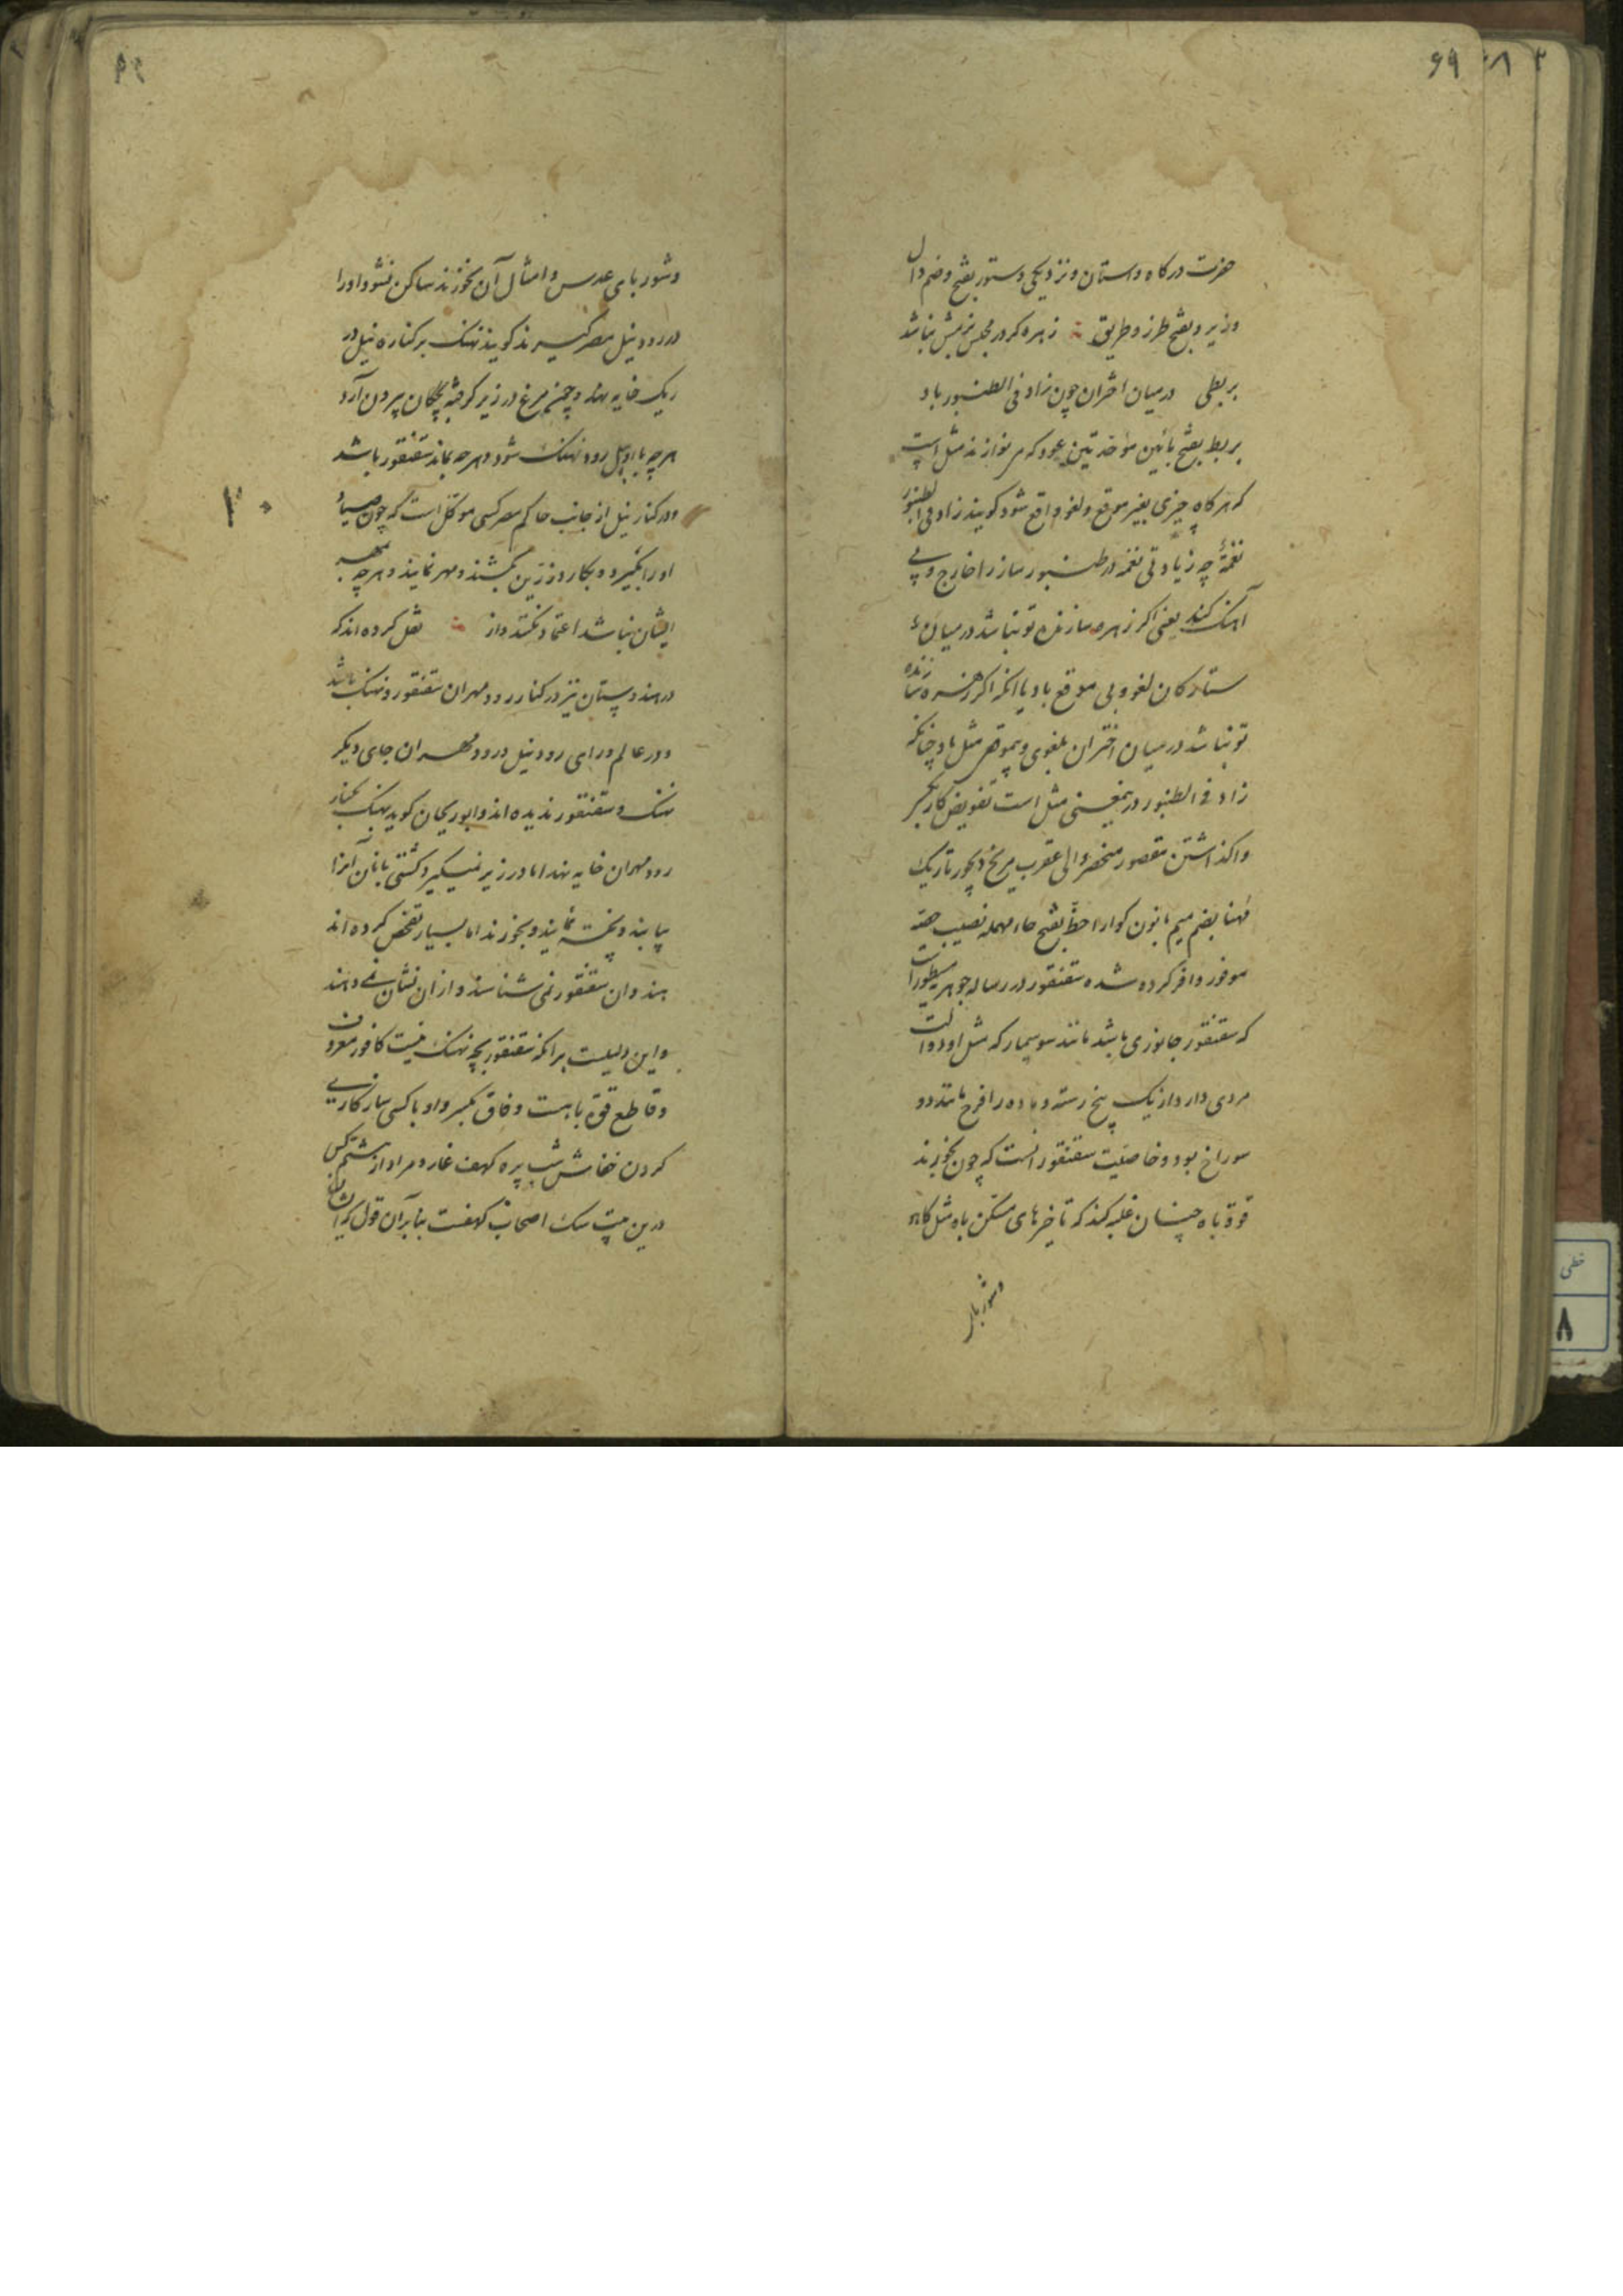 ۶۹
حضرت درکاه و استان و نزدیکی دستور بفتح و ضم دال
وزیر و بفتح طرز و طریق زهره کر در مجلس بزمش نباشد
بربطی درمیان اختران چون زاد فی الطنبور باد
بربط بفتح بائین موحدتین عود که می نوازند مثل است
که هرکاه چیزی بغیر موقع و لغو واقع شود کویند زاد فی الطنبور
نغمة چه زیادتی نغمه در طنبور ساز را خارج و بی
آهنک کند یعنی اکر زهره سازنده تو نباشد درمیان
ستارکان لغو و بی موقع باد یا انکه اکر زهره سازنده
تو نباشد درمیان اختران بلغوی و بیموقعی مثل باد چنانکه
زاد فی الطنبور درینمعنی مثل است تفویض کار بکسی
واکذاشتن مقصور منحصر والی عقرب مریخ دیجور تاریک
مهنا بضم میم بانون کوارا حظ بفتح حاء مهمله نصیب حصه
موفور وافر کرده شده سقنقور در رساله جوهر مسطور است
که سقنقور جانوری باشد مانند سوسمار که مثل او دو الت
مردی دارد از یک بیخ رسته و ماده را فرج مانند دو
سوراخ بود و خاصیت سقنقور انست که چون بخورند
قوة باه چنسان غلبه کند که تا خیزهای مسکن باه مثل کاه
وشوربای
وشوربای عدس و امثال آن نخورند ساکن نشود او را
در رود نیل مصر کیرند کویند نهنک بر کناره نیل در
ریک خایه نهد و چون مرغ در زیر کرفته بچکان بیرون آرد
هرچه با اوبیل رود نهنک شود و هرچه بماند سقنقور باشد
ودر کنار نیل از جانب حاکم مصر کسی موکل است که چون صیاد
او را بکیرد و بکارد زرین بکشند و مهر نمایند و هرچه بمهر
ایشان نباشد اعتماد نکنند و از نقل کرده اند که
در هندوستان نیز در کنار رود مهران سقنقور و نهنک باشد
ودر عالم ورای رود نیل و رود مهران جای دیکر
نهنک و سقنقور ندیده اند و ابو ریحان کوید نهنک بکنار
رود مهران خایه نهد اما در زیر نمیکیرد و کشتی بانان آنرا
بیابند و پخته نمایند و بخورند اما بسیار تفحص کرده اند
هندوان سقنقور نمی شناسند و از ان نشان نمی دهند
واین دلیلست برانکه سقنقور بچه نهنک نیست کافور معروف
و قاطع قوة باه است وفاق بکسر واو با کسی سازکاری
کردن خفاش شب پره کهف غار و مراد از هشتم کس
درین بیت سک اصحاب کهفست بنابرآن قول که ایشان